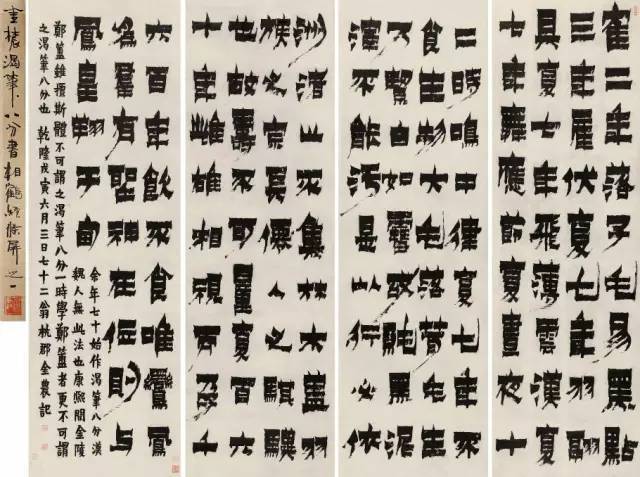 隺二年落子毛易黑點
三年產伏复七年羽翮
具复七年飛薄雲漢复
七年舞應節复晝夜十
二時鳴中律复七年不
食生物大毛落茸毛生
乃絜白如雪或純黑泥
不能污是以行必依
洲渚止不集林木盖羽
族之宗僊人之騏驥
也故壽不可量复百六
十年雌雄相視而孕千
六百年飲不食唯鸞鳳
為羣有聖神在位則与
鳳皇翔于甸
余年七十始作渴筆八分漢
魏人無此法也康熙間金陵
鄭簠雖擅斯體不可謂之渴筆八分一時學鄭簠者更不可謂
之渴筆八分也 乾隆戊寅六月三日七十二翁杭郡金農記
金農渴筆八分書相鶴經條屏之一